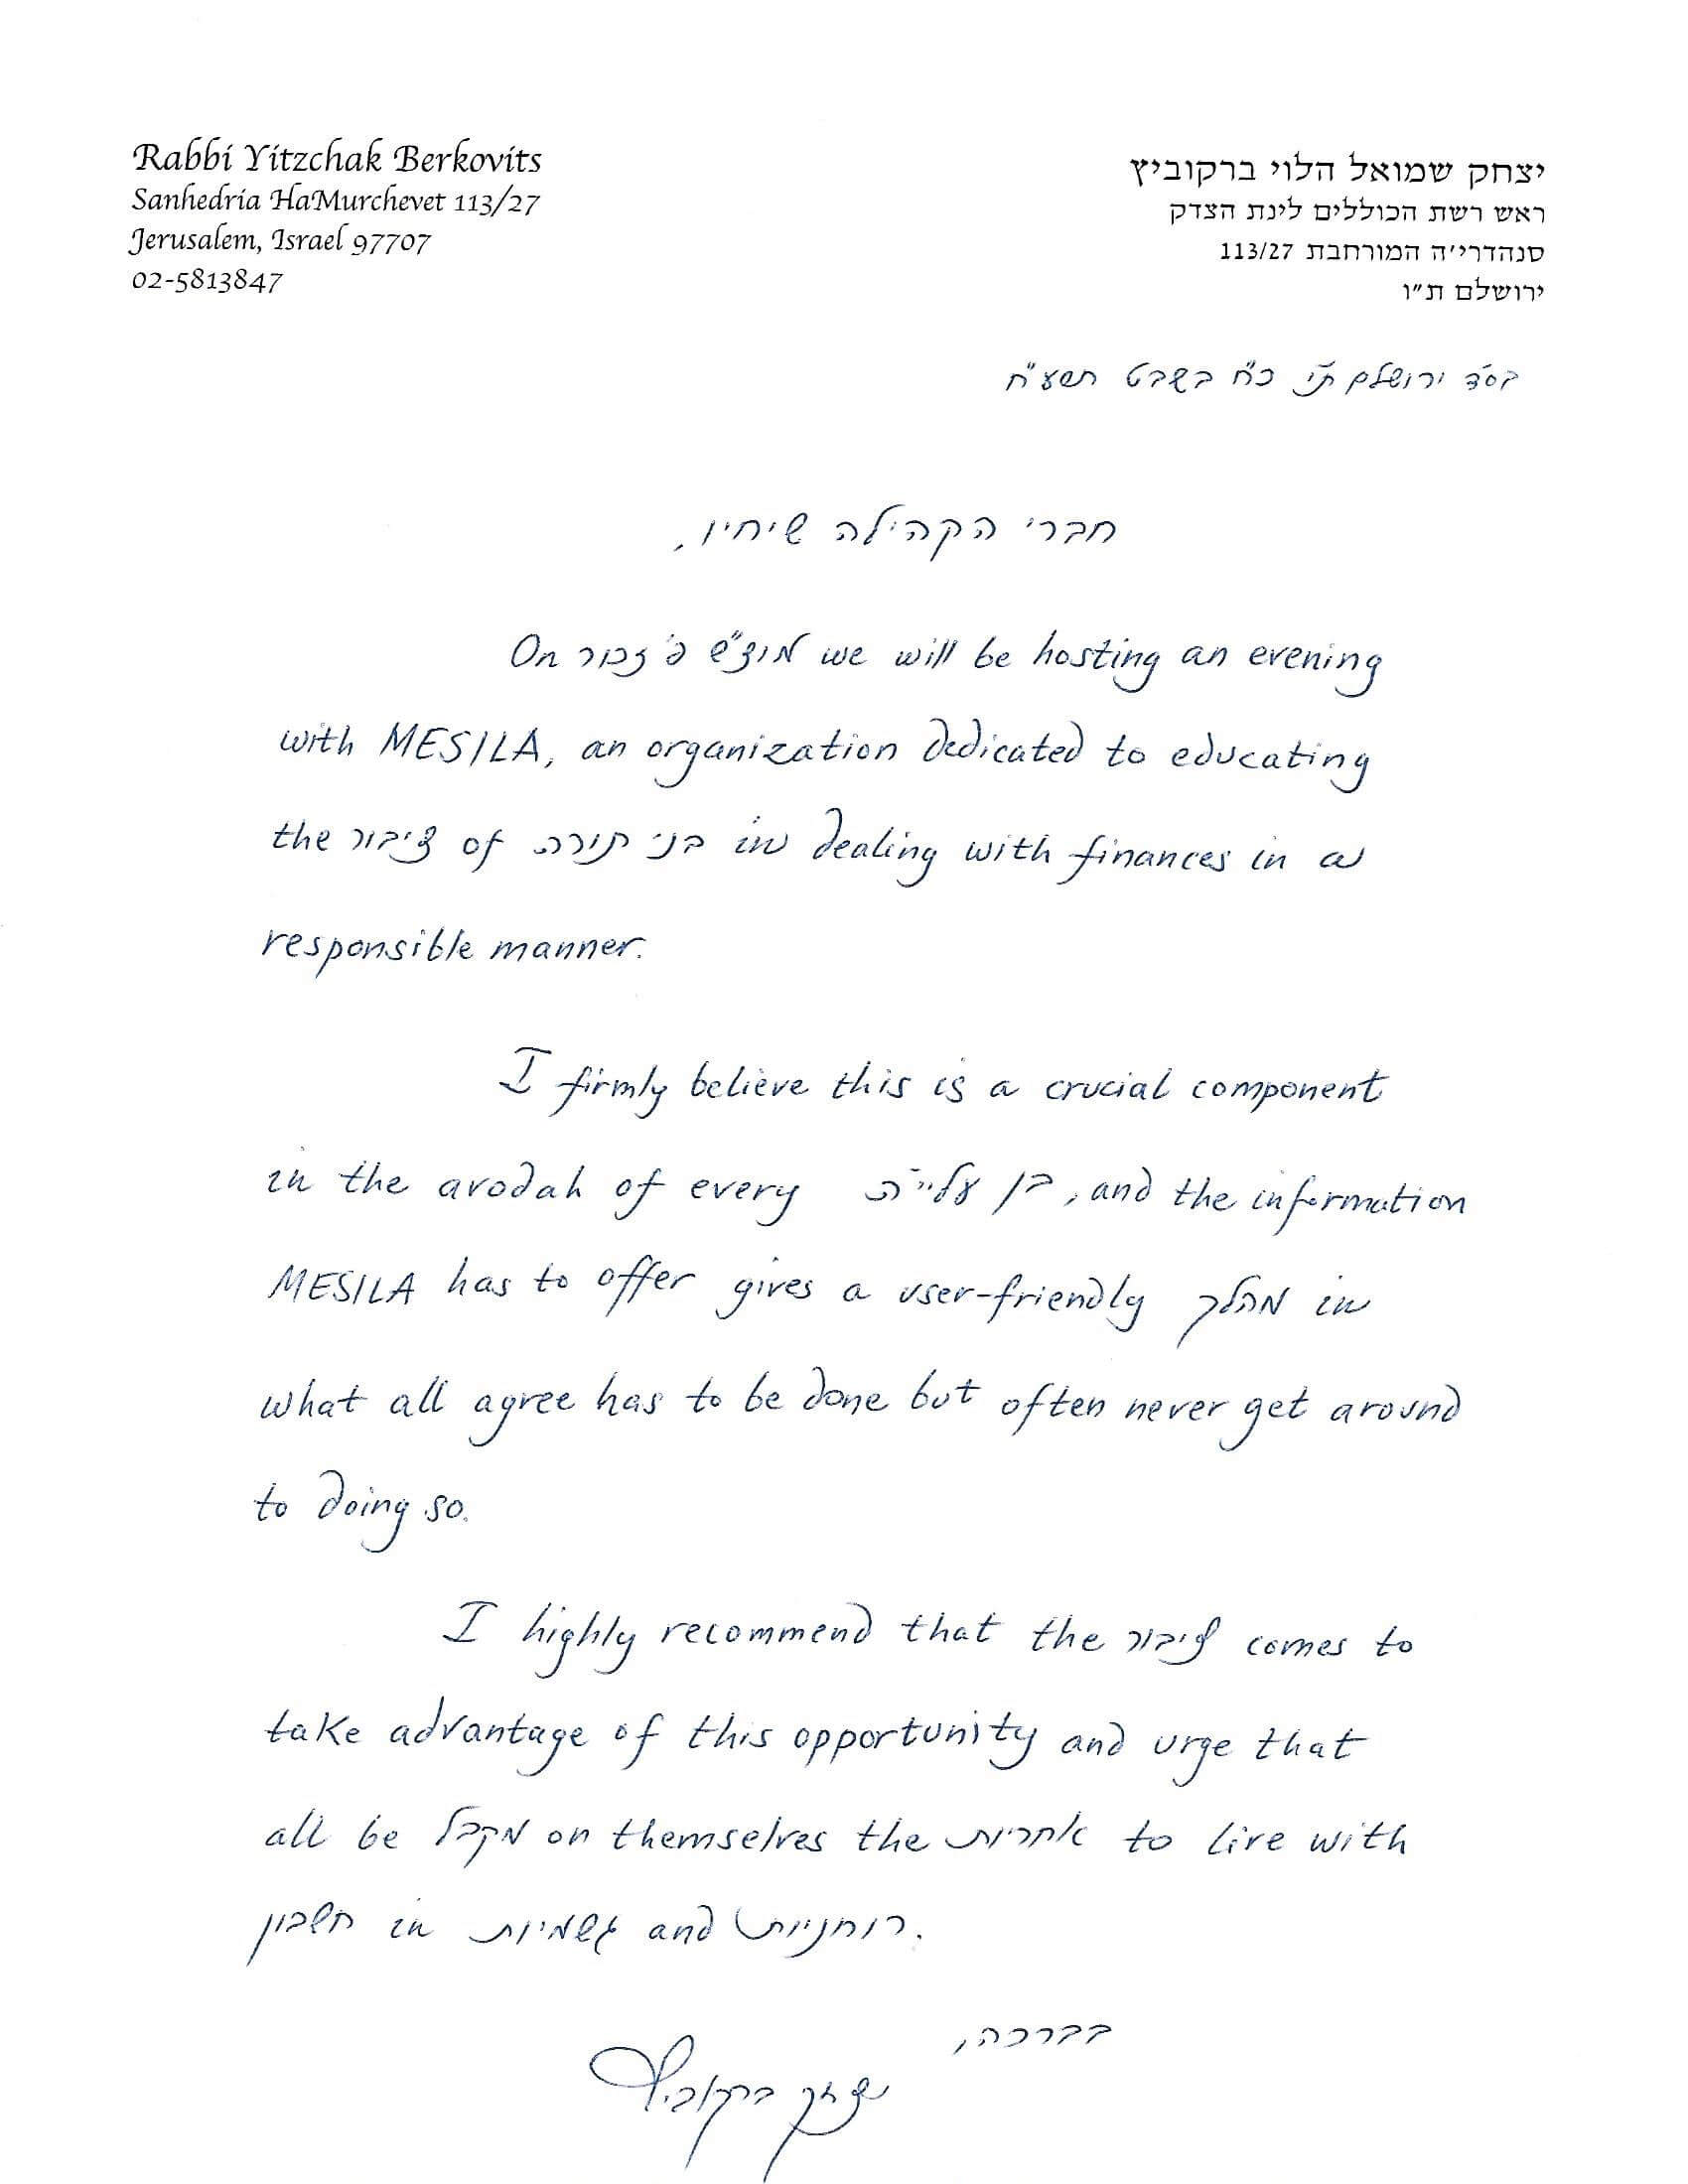 Rabbi Yitzchak Berkovits
Sanhedria HaMurchevet 113/27
Jerusalem, Israel 97707
02-5813847
יצחק שמואל הלוי ברקוביץ
ראש רשת הכוללים לינת הצדק
סנהדרי'ה המורחבת 113/27
ירושלם ת"ו
בס"ד ירושלם ת"ו כ"ח בשבט תשע"ח
חברי הקהילה שיחיו,
On מוצ"ש פ' זכור we will be hosting an evening
with MESILA, an organization dedicated to educating
the ציבור of בני תורה in dealing with finances in a
responsible manner.
I firmly believe this is a crucial component
in the avodah of every בן עלי"ה, and the information
MESILA has to offer gives a user-friendly מהלך in
what all agree has to be done but often never get around
to doing so.
I highly recommend that the ציבור comes to
take advantage of this opportunity and urge that
all be מקבל on themselves the אחריות to live with
חשבון in גשמיות and רוחניות.
בברכה,
יצחק ברקוביץ